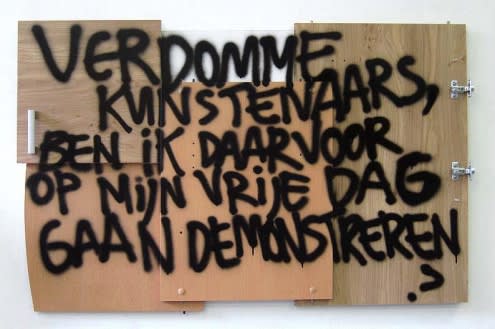 VERDOMME
KUNSTENAARS,
BEN IK DAARVOOR
OP MIJN VRIJE DAG
GAAN DEMONSTREREN
?